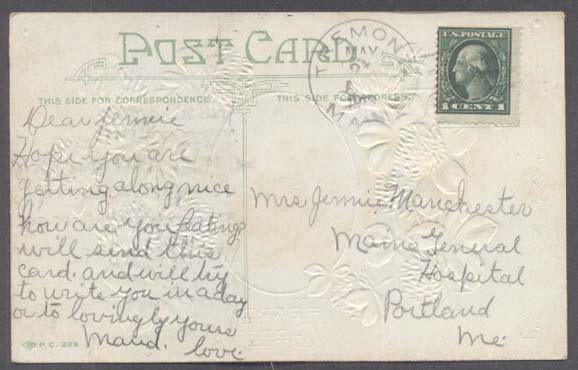 POST CARD
THIS SIDE FOR CORRESPONDENCE
THIS SIDE FOR ADDRESS
TREMONT
MAY
U.S. POSTAGE
1 CENT 1
Dear Jennie
Hope you are
getting along nice
how are you eating?
will send this
card. and will try
to write you in a day
or to lovingly yours
Maud. love.
Mrs Jennie Manchester
Maine General
Hospital
Portland
Me.
P.C. 229.